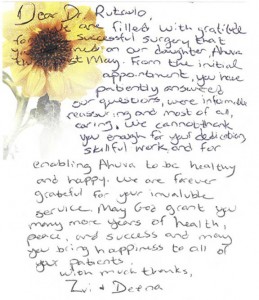 Dear Dr. Rutardo,
We are filled with gratitude
for successful surgery that
on our daughter, Ahuva
this past May. From the initial
appointment, you have
patiently answered
our questions, were informative
reassuring and most of all,
caring. We cannot thank
you enough for your dedication,
skillful work and for
enabling Ahuva to be healthy
and happy. We are forever
grateful for your invaluable
service. May God grant you
many more years of health,
peace, and success and may
you bring happiness to all of
your patients.
With much thanks,
Zvi & Deena